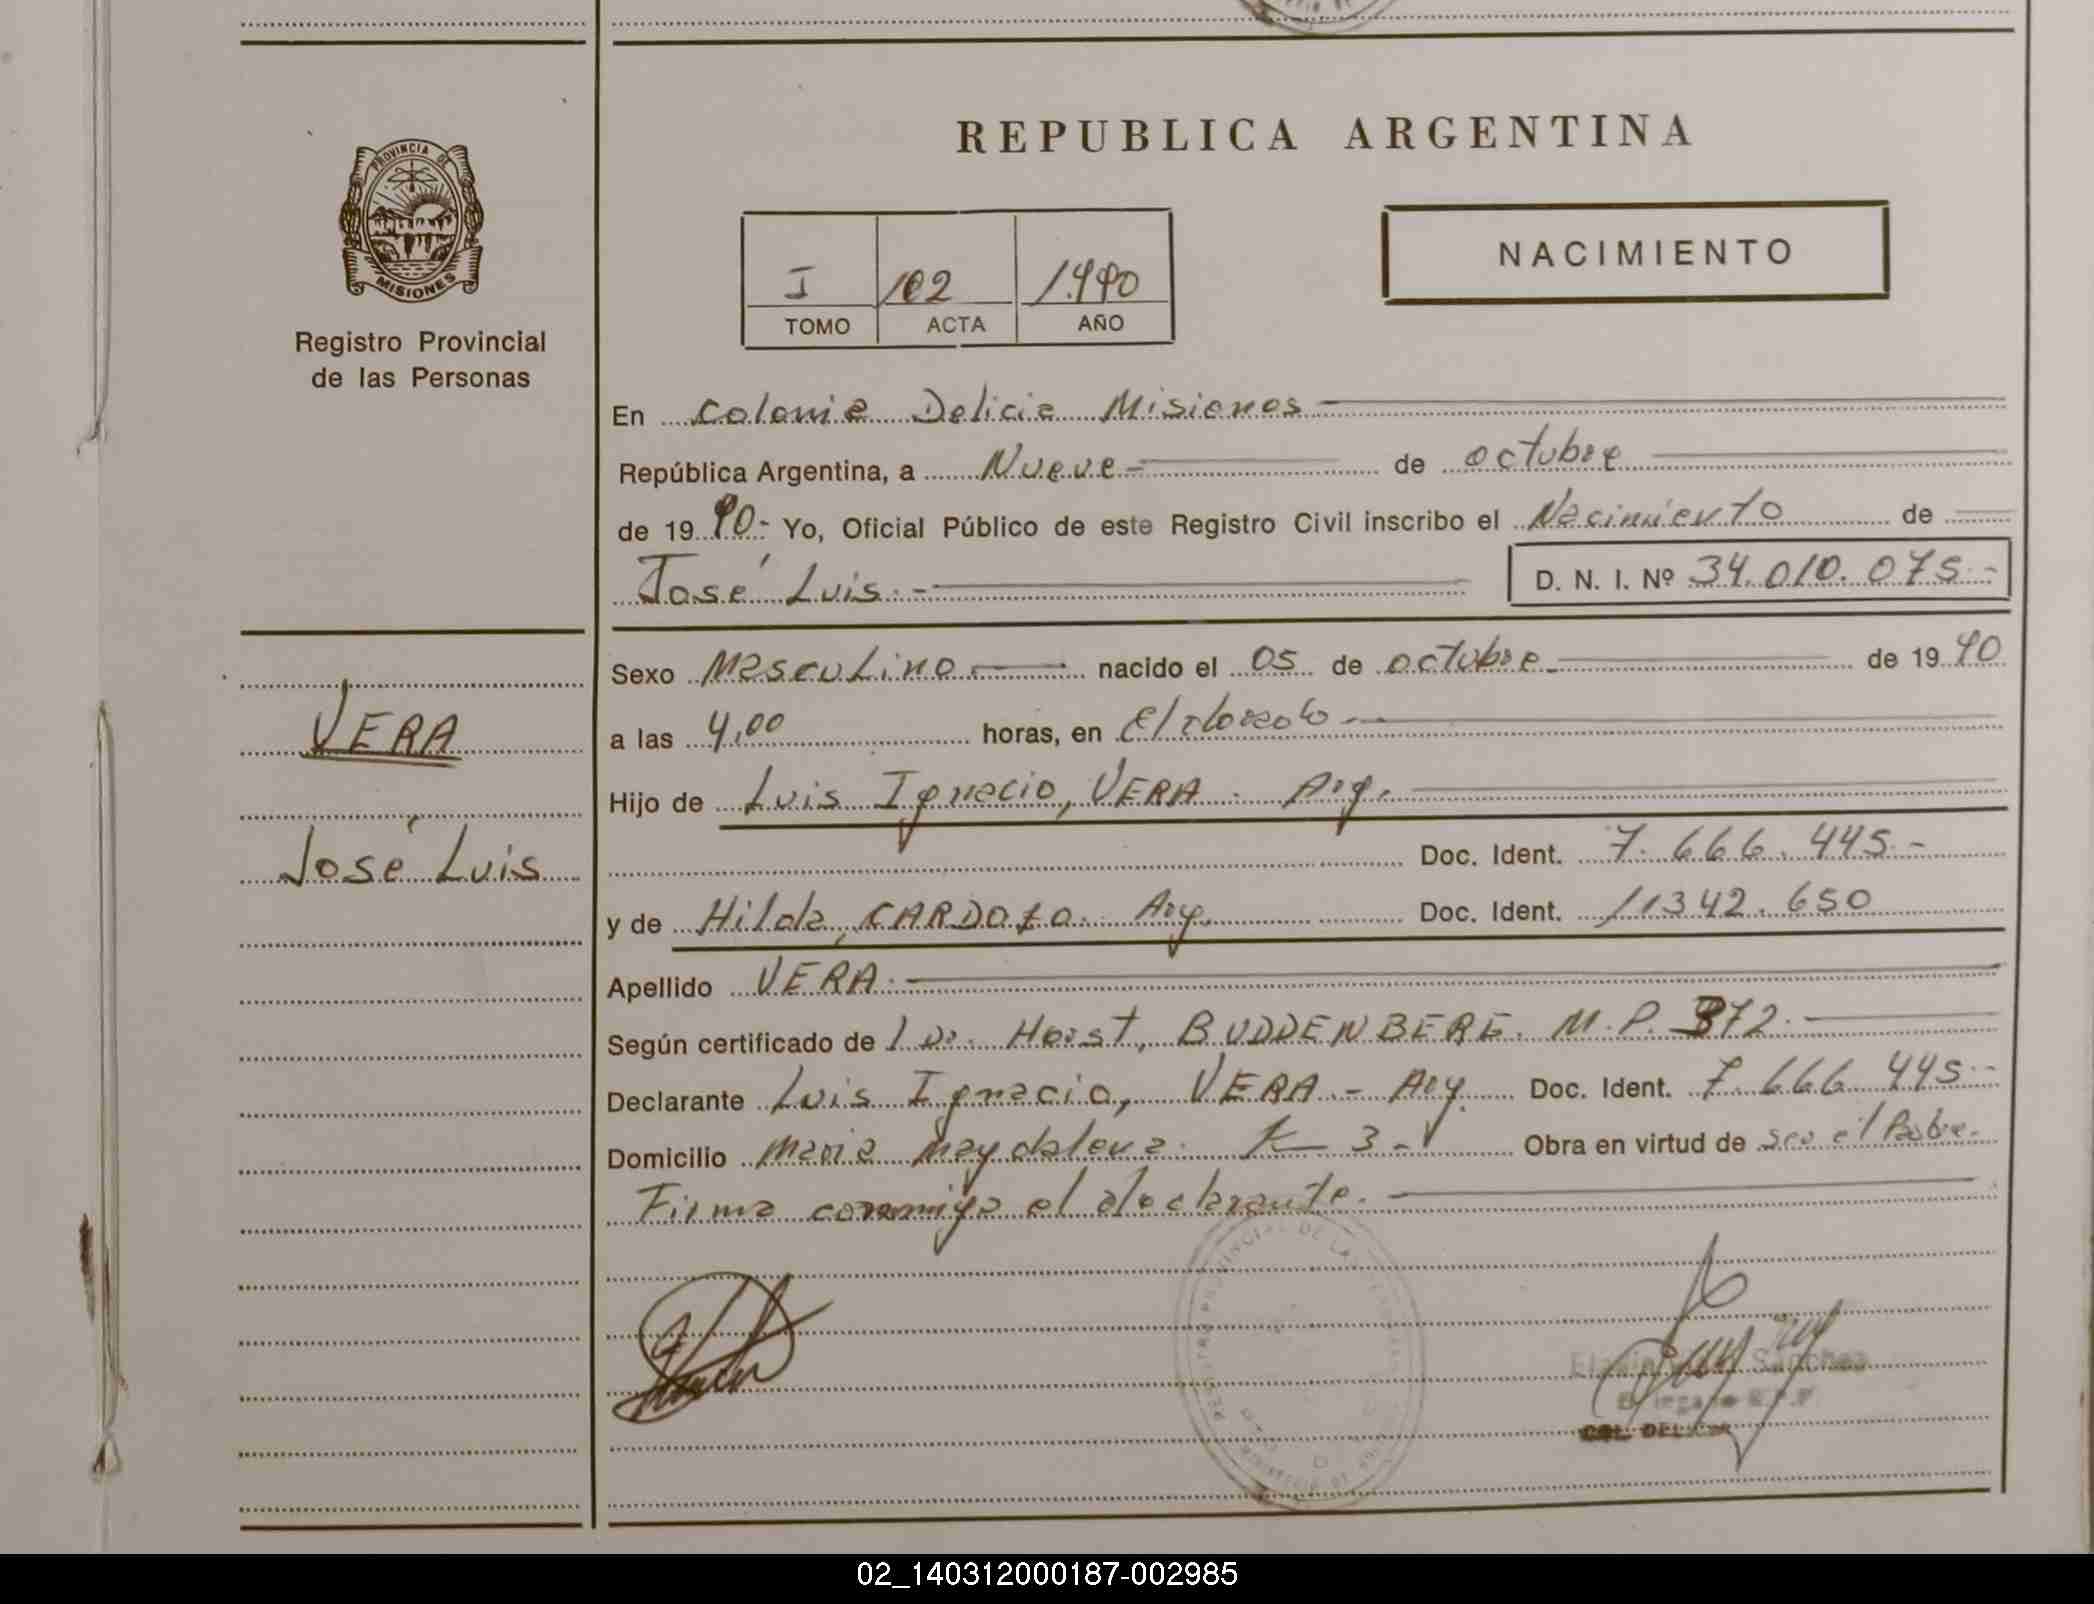 PROVINCIA DE
MISIONES
Registro Provincial
de las Personas
VERA
José Luis
REPUBLICA ARGENTINA
I 102 1.990
TOMO ACTA AÑO
NACIMIENTO
En Colonia Delicia Misiones
República Argentina, a Nueve - de octubre
de 19 90.- Yo, Oficial Público de este Registro Civil inscribo el Nacimiento de
José Luis. - D. N. I. Nº 34.010.075.-
Sexo Masculino nacido el 05 de octubre de 19 90
a las 4,00 horas, en Eldorado.-
Hijo de Luis Ignacio, VERA. Arg.
Doc. Ident. 7.666.445.-
y de Hilda, CARDOZO. Arg. Doc. Ident. 11342.650
Apellido VERA.
Según certificado de Dr. Horst, BUDDENBERG. M.P. 372.
Declarante Luis Ignacio, VERA. - Arg. Doc. Ident. 7.666.445.-
Domicilio Maria Magdalena. K 3.- Obra en virtud de ser el Padre.-
Firma conmigo el declarante.
REGISTRO PROVINCIAL DE LAS PERSONAS
Sanchez
02_140312000187-002985